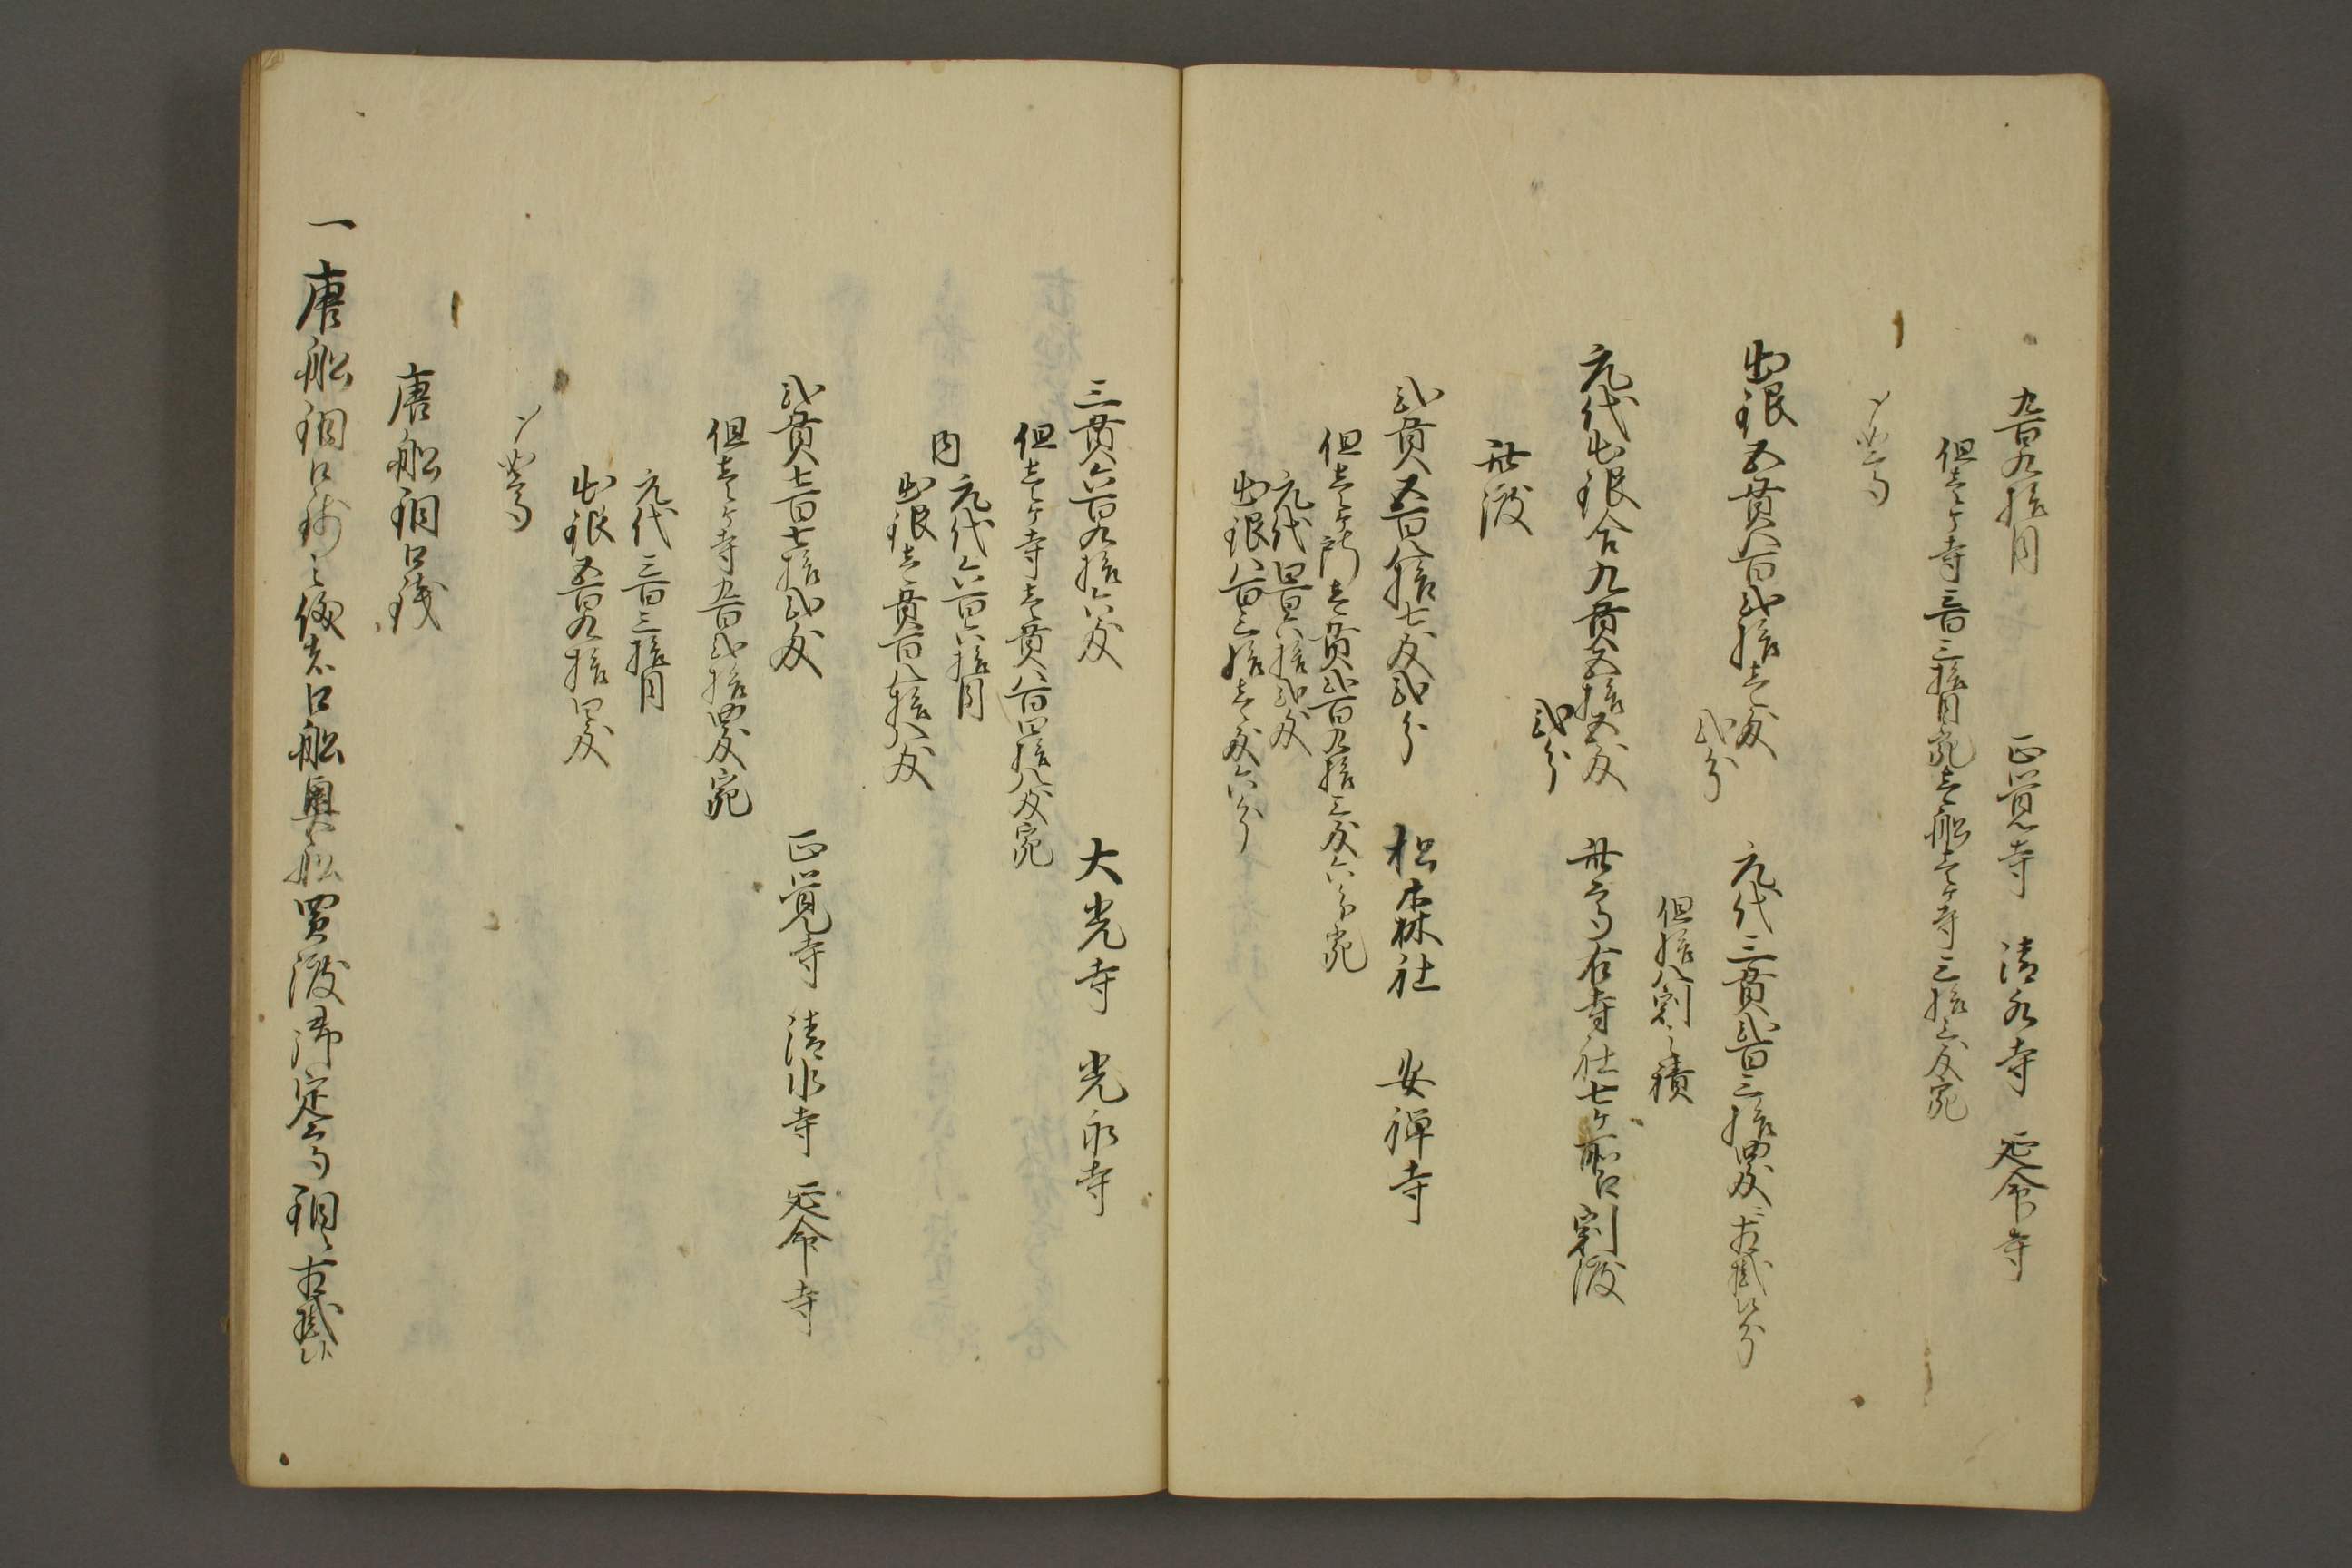 九百九拾目　正覚寺　清水寺　延命寺
但壱ケ寺三百三拾目宛壱船壱ケ寺三拾三匁宛
〆高
出銀五貫八百弐拾壱匁弐分　元代三貫弐百三拾四匁ニ掛ル分
但拾八割之積
元代出銀合九貫五拾五匁弐分　此高右寺社七ケ所江割渡
此渡
弐貫五百八拾七匁弐分　松森社　安禅寺
但壱ケ所壱貫弐百九拾三匁六分宛
元代四百六拾弐匁
出銀八百三拾壱匁六分
三貫六百九拾六匁　大光寺　光永寺
但壱ケ寺壱貫八百四拾八匁宛
内
元代六百六拾目
出銀壱貫百八拾八匁
弐貫七百七拾弐匁　正覚寺　清水寺　延命寺
但壱ケ寺九百弐拾四匁宛
元代三百三拾目
出銀五百九拾四匁
〆高
唐船銅口銭
一唐船銅口銭之儀者口船奥船買渡御定高銅ニ相掛ケ